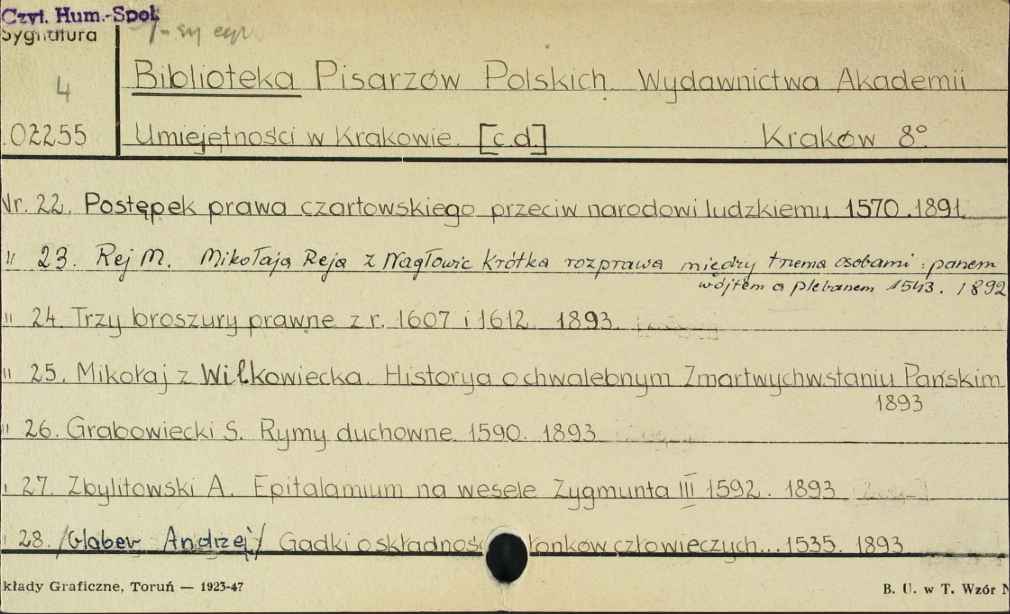 Czyt. Hum.-Społ.
Sygnatura
4
Biblioteka Pisarzów Polskich. Wydawnictwa Akademii
02255 Umiejętności w Krakowie. [c.d.] Kraków 8°.
Nr. 22. Postępek prawa czartowskiego przeciw narodowi ludzkiemu 1570. 1891
" 23. Rej M. Mikołaja Reja z Nagłowic Krótka rozprawa między trzema osobami: panem
wójtem a plebanem 1543. 1892
" 24. Trzy broszury prawne z r. 1607 i 1612. 1893.
" 25. Mikołaj z Wilkowiecka. Historya o chwalebnym Zmartwychwstaniu Pańskim
1893
" 26. Grabowiecki S. Rymy duchowne. 1590. 1893
27. Zbylitowski A. Epitalamium na wesele Zygmunta III 1592. 1893
28. /Glaber Andrzej/ Gadki o składnoś łonków człowieczych... 1535. 1893
kłady Graficzne, Toruń — 1923-47
B. U. w T. Wzór N